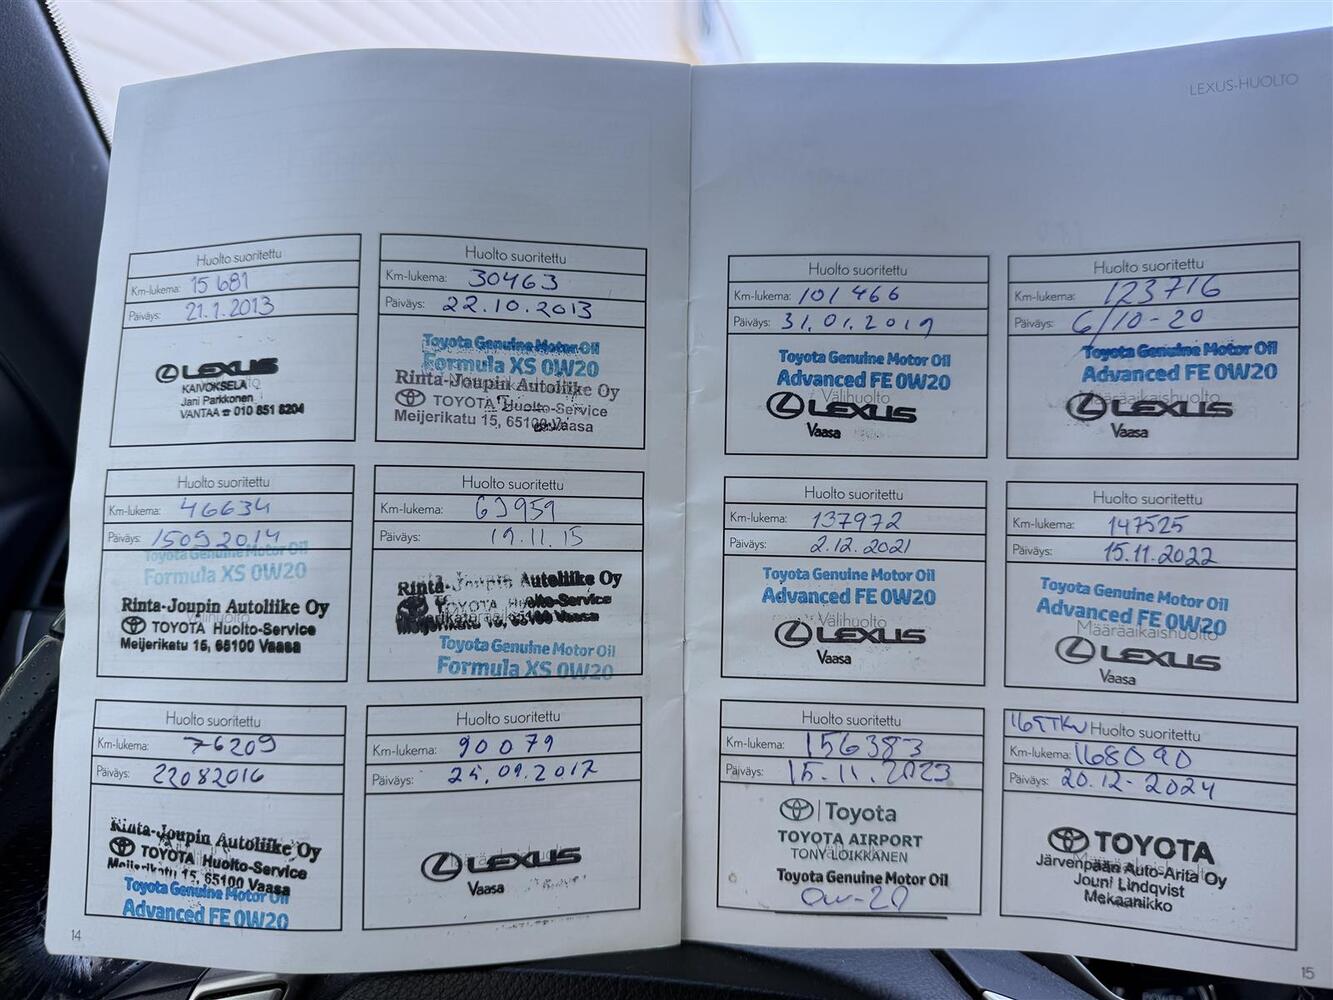 LEXUS-HUOLTO
Huolto suoritettu
Km-lukema: 15 681
Päiväys: 21.1.2013
LEXUS
KAIVOKSELA
Jani Parkkonen
VANTAA ☎ 010 851 8204
Huolto suoritettu
Km-lukema: 30463
Päiväys: 22.10.2013
Toyota Genuine Motor Oil
Formula XS 0W20
Rinta-Joupin Autoliike Oy
TOYOTA Huolto-Service
Meijerikatu 15, 65100 Vaasa
Huolto suoritettu
Km-lukema: 46634
Päiväys: 15092014
Toyota Genuine Motor Oil
Formula XS 0W20
Rinta-Joupin Autoliike Oy
Välihuolto
TOYOTA Huolto-Service
Meijerikatu 15, 65100 Vaasa
Huolto suoritettu
Km-lukema: 63959
Päiväys: 19.11.15
Rinta-Joupin Autoliike Oy
TOYOTA Huolto-Service
Meijerikatu 15, 65100 Vaasa
Toyota Genuine Motor Oil
Formula XS 0W20
Huolto suoritettu
Km-lukema: 76209
Päiväys: 22082016
Rinta-Joupin Autoliike Oy
TOYOTA Huolto-Service
Meijerikatu 15, 65100 Vaasa
Toyota Genuine Motor Oil
Advanced FE 0W20
Huolto suoritettu
Km-lukema: 90079
Päiväys: 25.09.2017
LEXUS
Vaasa
14
Huolto suoritettu
Km-lukema: 101466
Päiväys: 31.01.2019
Toyota Genuine Motor Oil
Advanced FE 0W20
Välihuolto
LEXUS
Vaasa
Huolto suoritettu
Km-lukema: 123716
Päiväys: 6/10-20
Toyota Genuine Motor Oil
Advanced FE 0W20
Määräaikaishuolto
LEXUS
Vaasa
Huolto suoritettu
Km-lukema: 137972
Päiväys: 2.12.2021
Toyota Genuine Motor Oil
Advanced FE 0W20
Välihuolto
LEXUS
Vaasa
Huolto suoritettu
Km-lukema: 147525
Päiväys: 15.11.2022
Toyota Genuine Motor Oil
Advanced FE 0W20
Määräaikaishuolto
LEXUS
Vaasa
Huolto suoritettu
Km-lukema: 156383
Päiväys: 15.11.2023
Toyota
TOYOTA AIRPORT
TONY LOIKKANEN
Toyota Genuine Motor Oil
0w-20
165TKM Huolto suoritettu
Km-lukema: 168090
Päiväys: 20.12-2024
TOYOTA
Järvenpään Auto-Arita Oy
Jouni Lindqvist
Mekaanikko
15